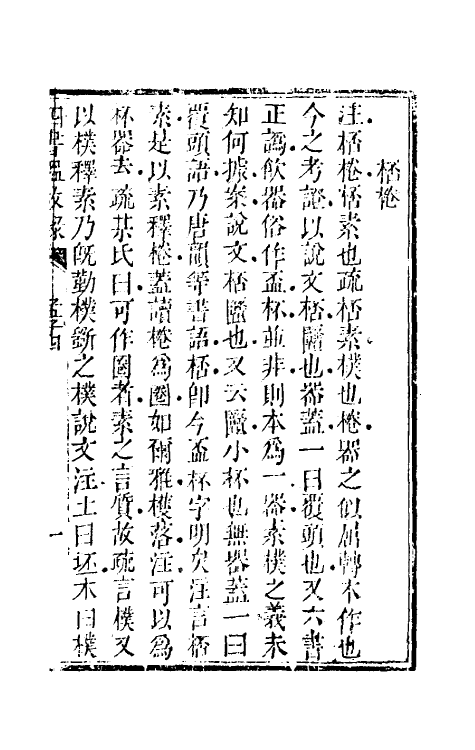 桮棬
注桮棬桮素也疏桮素樸也棬器之似屈轉木作也
今之考證以說文桮𠤎也器蓋一曰覆頭也又六書
正譌飲器俗作盃杯並非則本爲一器素樸之義未
知何據案說文桮也又云小杯也無器蓋一曰
覆頭語乃唐韻等書語桮即今盃杯字明矣注言桮
素是以素釋棬蓋讀棬爲圈如爾雅樓落注可以爲
杯器去疏某氏曰可作圈者素之言質故疏言樸又
以樸釋素乃旣勤樸斵之樸說文注土曰坯木曰樸
四書溫故錄 孟子四 一